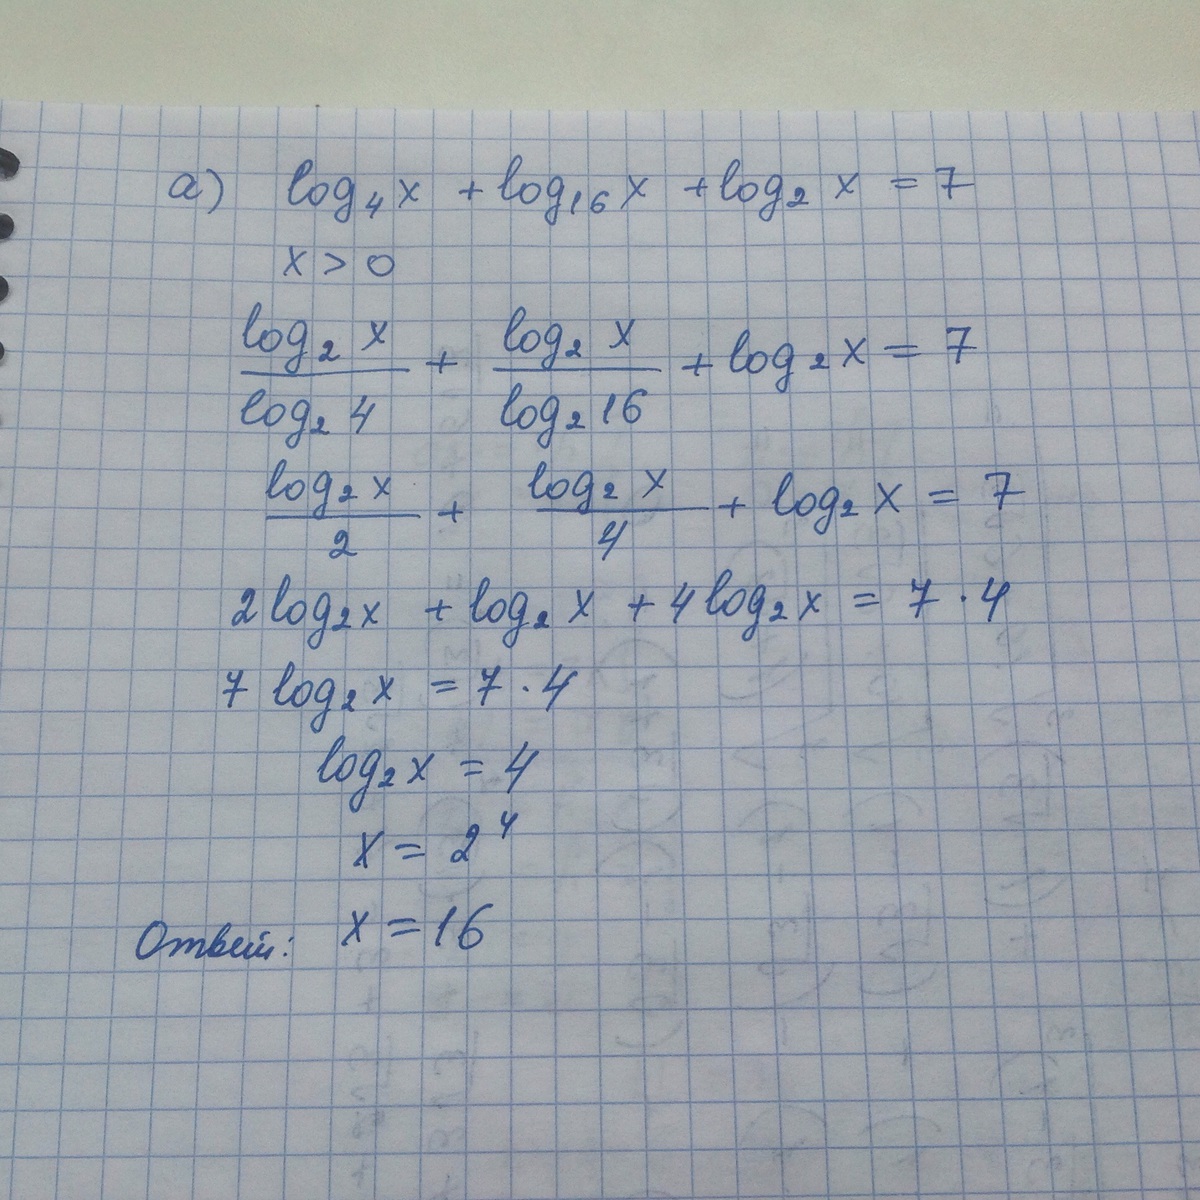 а) log₄x + log₁₆x + log₂x = 7
x > 0
log₂x / log₂4 + log₂x / log₂16 + log₂x = 7
log₂x / 2 + log₂x / 4 + log₂x = 7
2log₂x + log₂x + 4log₂x = 7·4
7 log₂x = 7·4
log₂x = 4
x = 2⁴
Ответ: x = 16